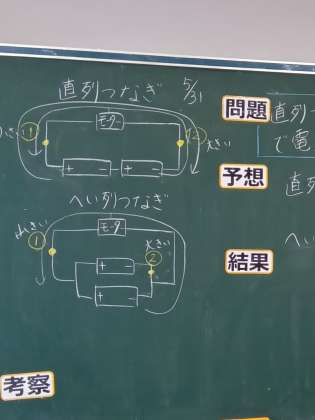 直列つなぎ 5/31
モーター
大きい
+ - + -
へい列つなぎ
小さい ① モーター
大きい ②
+ -
+ -
問題
直列つ
で電
予想
直列
へい
結果
考察